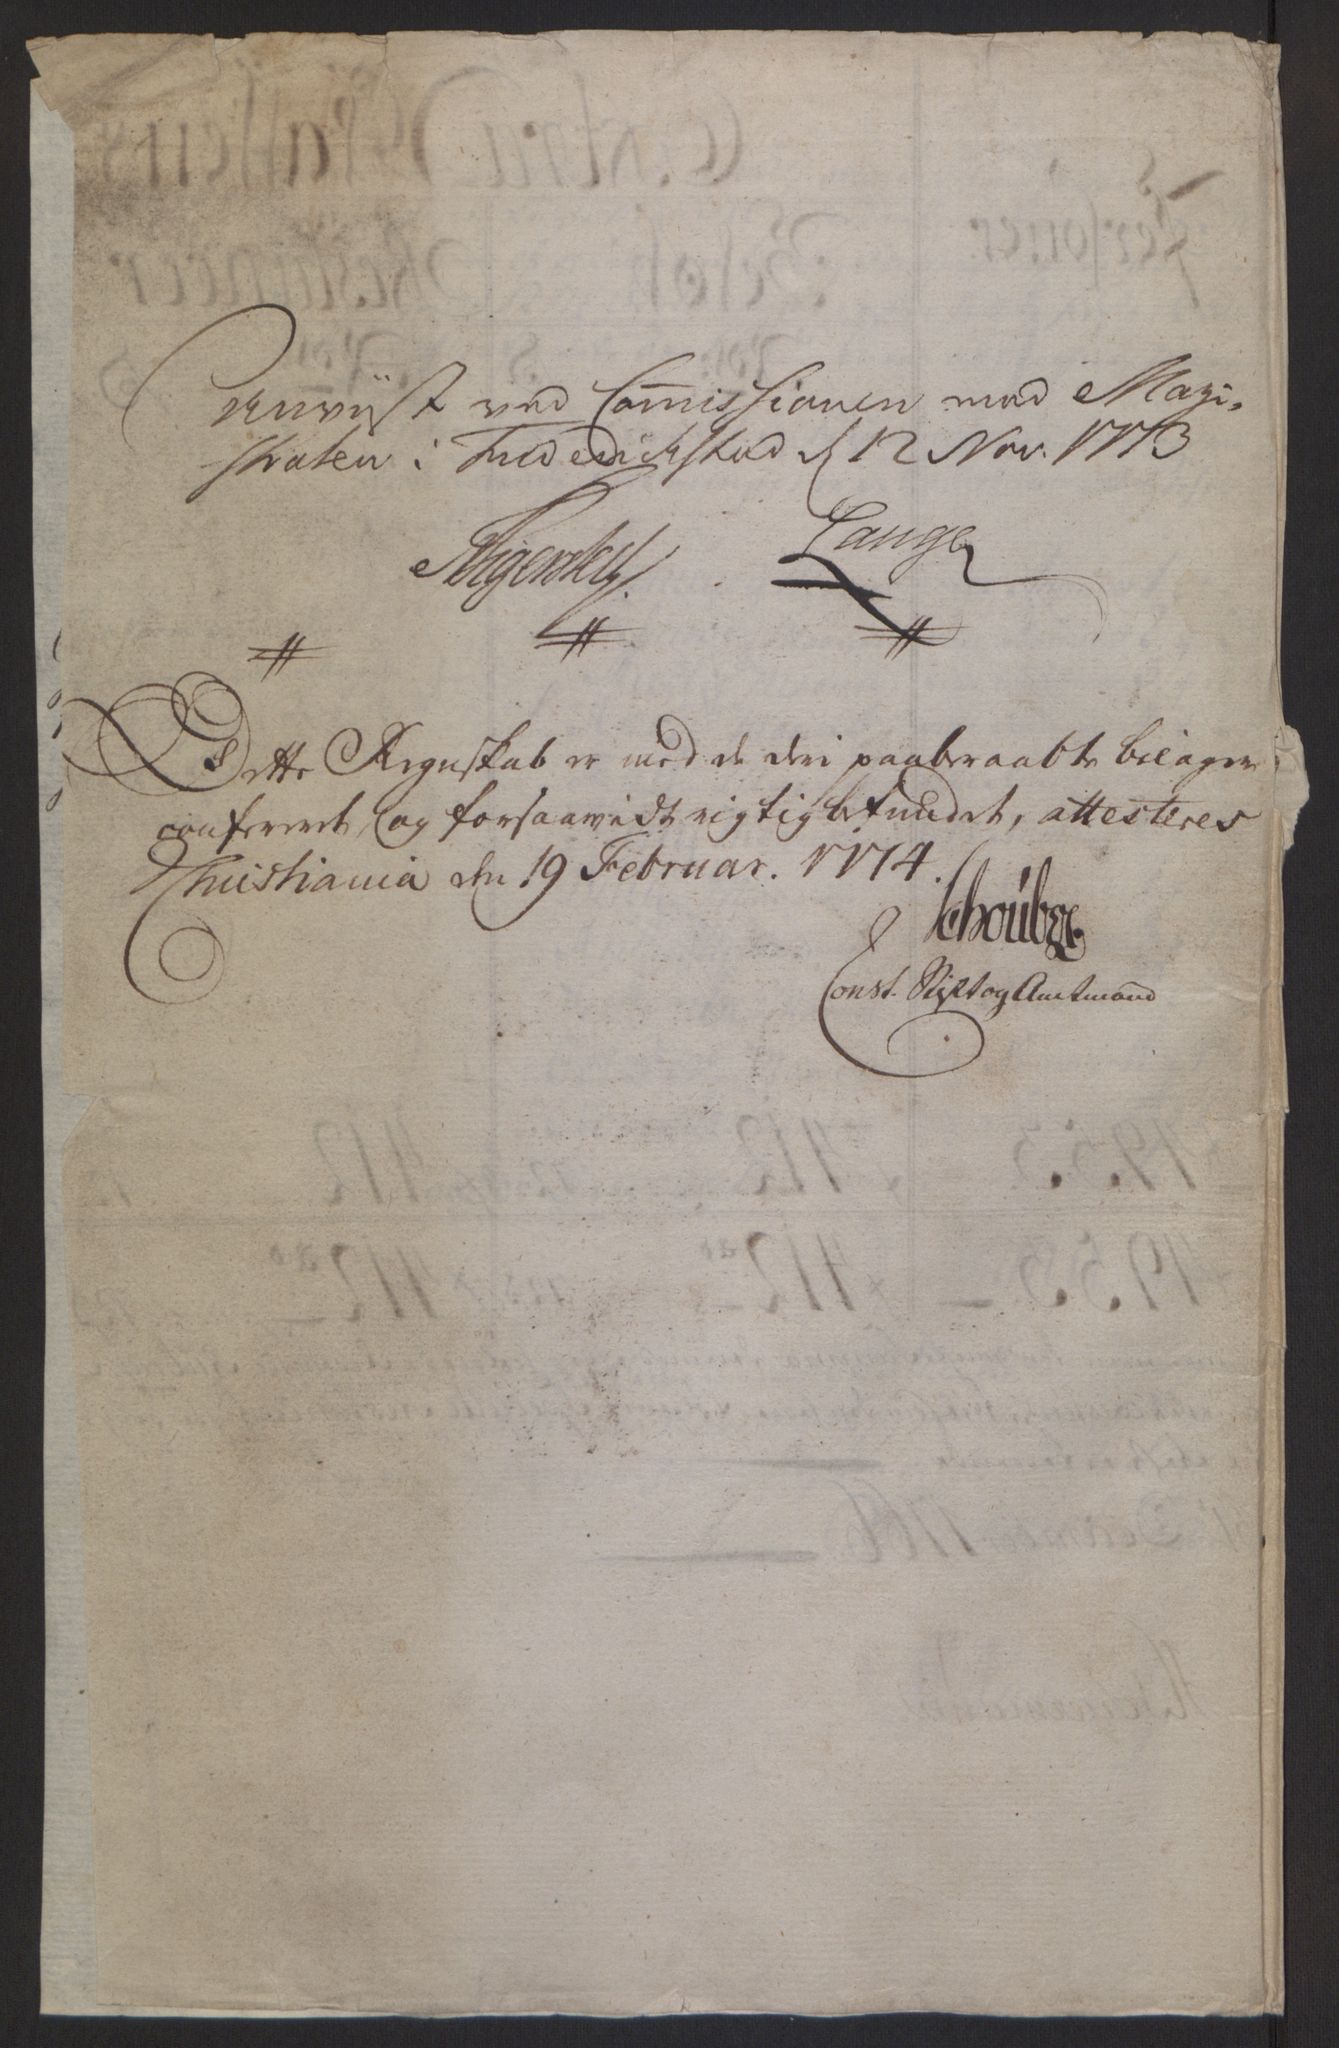 Anviist ved Com̄issionen med Magi-
straten i Friderichstad d 12 Nov. 1773
Lange
Dette Regnskab er med de deri paaberaabte bilager
confereret, og forsaavidt rigtig befundet, attesteres
Christiania den 19 Februar. 1774.
Schoübye
Const. Stiftog Amtman̄d